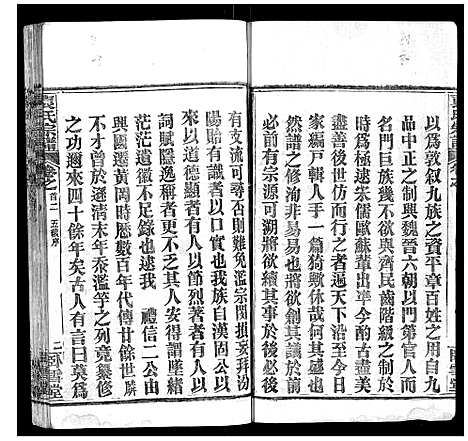 以爲敦叙九族之資平章百姓之用自九
品中正之制興魏晉六朝以門第官人而
名門巨族幾不欲與齊民齒階級之制於
時爲極逮宋儒歐蘇輩出準今酌古盡美
盡善後世仿而行之者遍天下沿至今日
家編戸輯人手一篇猗歟休哉何其盛也
然譜之修洵非易易考其世次詳其支派
必前有宗源可溯將欲續後於後必後
有支流可尋否則難免濫宗閥損妄拜汾
陽貽有識者以口實也我族自漢固公以
來以道德顯者有人以節烈著者有人以
詞賦隱逸稱者更不乏其人安得謂墜緒
茫茫遺徽不足錄也逮我　禮信二公由
興國遷黄岡時歷數百年代傳廿餘世孱
不才曾於遜清末年忝濫竽之列竟纂修
之功邇來四十餘年矣古人有言曰莫爲
袁氏宗譜　卷之首二　五級序　二　臥雪堂